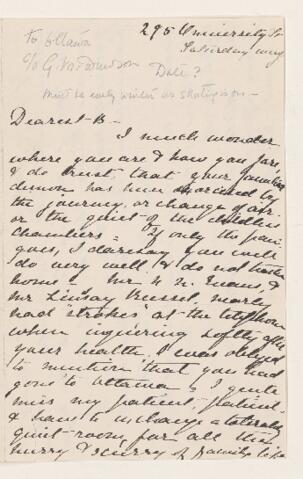 295 University St
Saturday
To Ottawa
c/o G.
Date?
must be early winter as skating is on -
Dearest B -
I much wonder
where you are & how you fare
& do trust that your
demon has been by
the journey, or change of air
or the quiet of the childless
chambers = If only the pain
goes, I daresay you will
do very well & do not hasten
home. Mr Evans, &
Mr Linsay Russel, nearly
had strokes at the
when inquiring softly after
your health, I was obliged
to mention that you had
gone to Ottawa - I quite
miss my patient, patient,
& have to exchange a tolerably
quiet room, for all the
hurry & scurry of family life